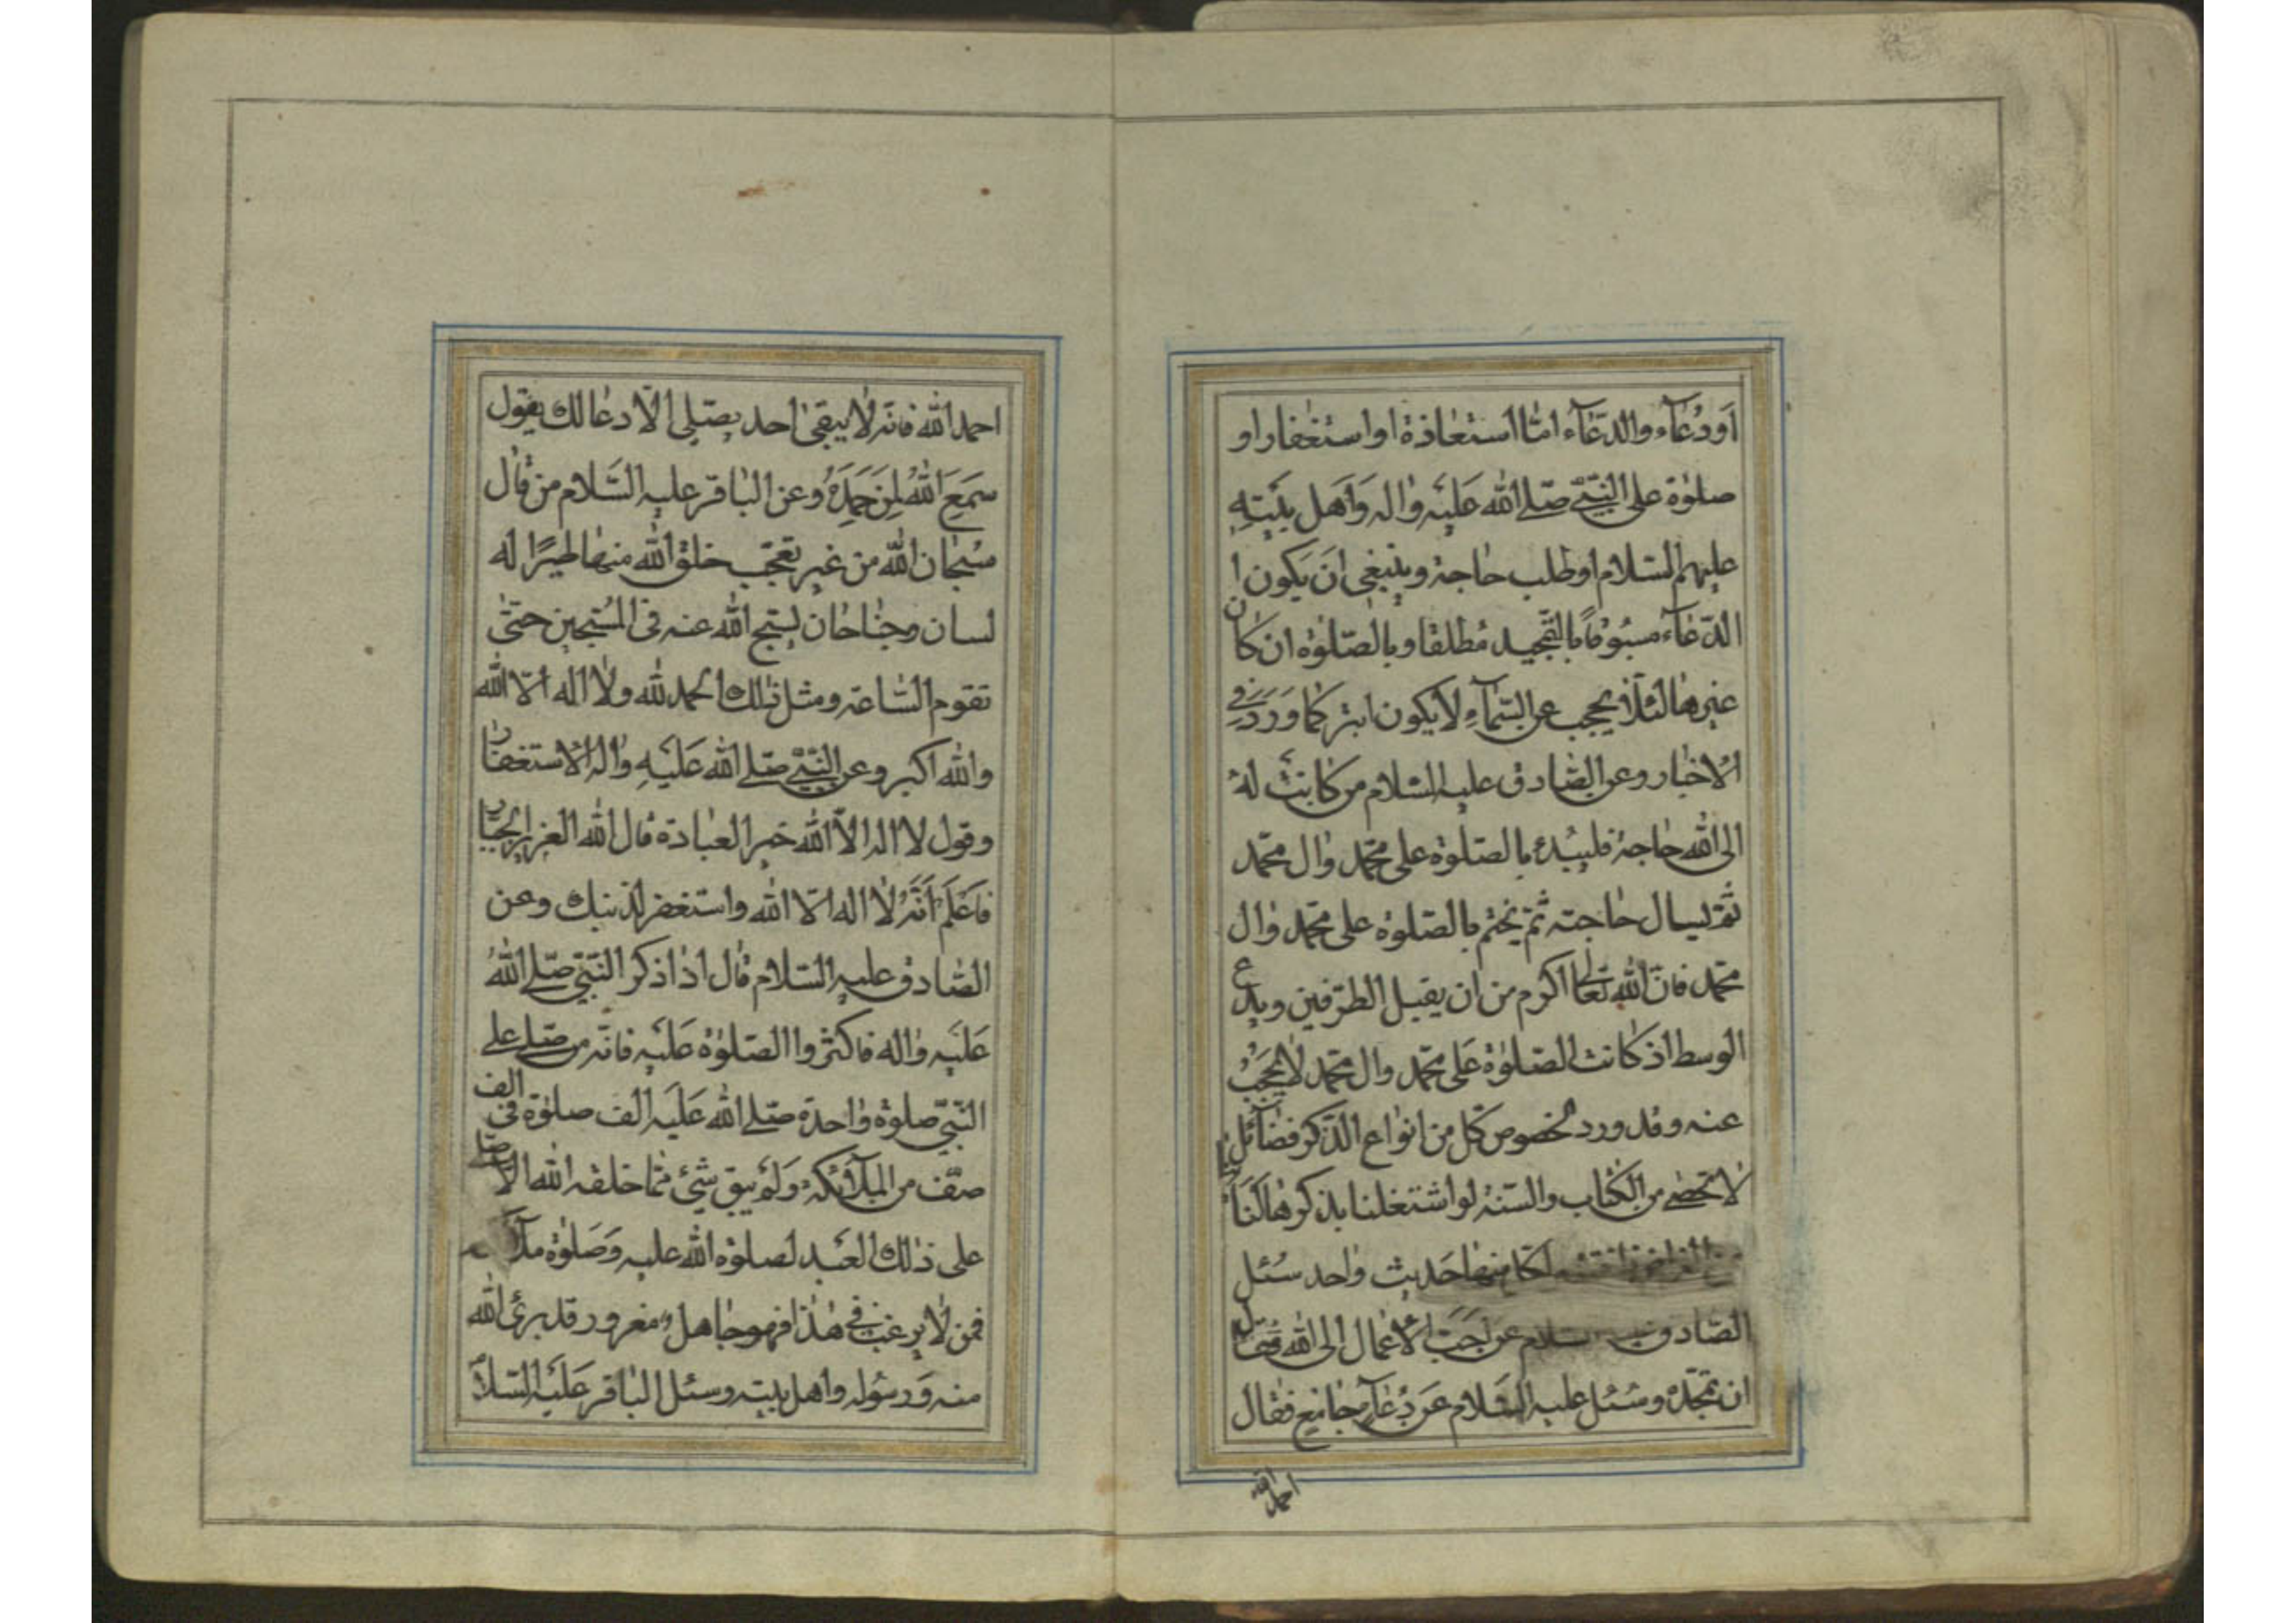 اَودُعآء والدّعآء امّا استعاذة او استغفار او
صلوٰة على النّبيّ صلّى الله عَليْه واٰله وَاَهل بَيْتِهِ
عليهم السّلام او طلب حاجة وينبغى ان يكون
الدّعآء مسبُوقًا بالتّمجيد مُطلقا وبالصّلوٰة ان كان
غيرها لئلّا يحجب عن السّمآءِ ولا يكون ابتر كما وَرَدَ فى
الاخبار وعن الصّادق عليه السّلام من كانت لهُ
الى الله حاجة فليبدء بالصّلوٰة على محمّد واٰل محمّد
ثمّ ليسال حاجته ثمّ يختم بالصّلوٰة على محمّد واٰل
محمّد فانّ الله تعالىٰ اكرم من ان يقبل الطّرفين ويدع
الوسط اذ كانت الصّلوٰة عَلى محمّد واٰل محمّد لا تحجَبُ
عنه وقد ورد لخصوص كلّ من انواع الذّكر فضآئل
لا تحصى من الكتاب والسّنّة لو اشتغلنا بذكرها لكنّا
منها حَديث واحد سُئل
الصّادق السلام عن احَبّ الاعمال الى الله فقال
ان تمجّدهُ وسُئل عليه السّلام عَن دُعآءٍ جامع فقال
احمد الله
احمد الله فانّه لا يبقىٰ احد يصلّى الّا دعا لك يقول
سَمِعَ اللهُ لِمَن حَمِدَهُ وعن الباقر عليه السَّلام من قال
سُبحان الله من غير تعجّب خلق الله منها طيرًا له
لسان وجناحان يسبّح الله عنه فى المُسبّحين حتّىٰ
تقوم السّاعة ومثل ذٰلك الحمد لله ولا اله الّا الله
والله اكبر وعن النّبيّ صلّى الله عَليْهِ واٰله الاستغفار
وقول لا اله الّا الله خير العبادة قال الله العزيز الجبّار
فاعْلَم اَنّهُ لا اله الّا الله واستغفر لذنبك وعن
الصّادق عليه السّلام قال اذا ذكر النّبىّ صلّى اللهُ
عَليْه واٰله فاكثروا الصّلوٰة عَليْه فانّه من صلّى على
النّبىّ صلوٰة واحدة صلّى الله عَليْه الف صلوٰة فى الف
صفّ من الملآئكة وَلَم يبق شئ ممّا خلقه الله الّا صلّى
على ذٰلك العَبد لصلوٰة الله عليه وَصَلوٰة
فمن لا يرغب فى هٰذا فهو جاهل مغرور قد برئ الله
منه وَرسُوله واهل بيته وسئل الباقر عَليْه السّلام